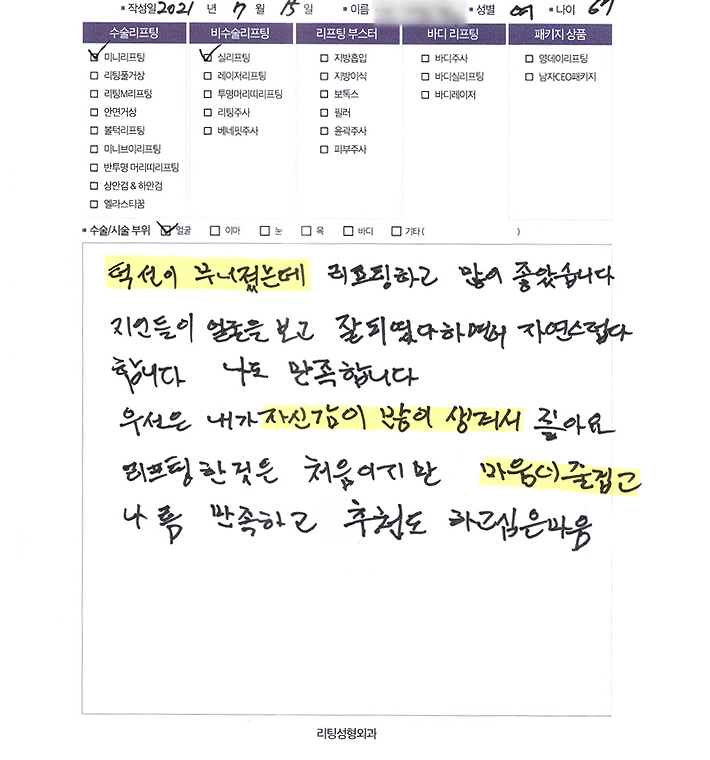 ▪ 작성일 2021 년 7 월 15 일 ▪ 이름 ▪ 성별 여 ▪ 나이
수술리프팅 비수술리프팅 리프팅 부스터 바디 리프팅 패키지 상품
미니리프팅 실리프팅 지방흡입 바디주사 영데이리프팅
리팅풀거상 레이저리프팅 지방이식 바디실리프팅 남자CEO패키지
리팅M리프팅 투명머리띠리프팅 보톡스 바디레이저
안면거상 리팅주사 필러
볼턱리프팅 베네핏주사 윤곽주사
미니브이리프팅 피부주사
반투명 머리띠리프팅
상안검 & 하안검
엘라스티꿈
▪ 수술/시술 부위 얼굴 이마 눈 목 바디 기타( )
턱선이 무너졌는데 리프팅하고 많이 좋았습니다
지인들이 얼굴을 보고 잘 되었다하면서 자연스럽다
합니다 나도 만족합니다
우선은 내가 자신감이 많이 생겨서 좋아요
리프팅 한것은 처음이지만 마음이 즐겁고
나름 만족하고 추천도 하고싶은마음
리팅성형외과